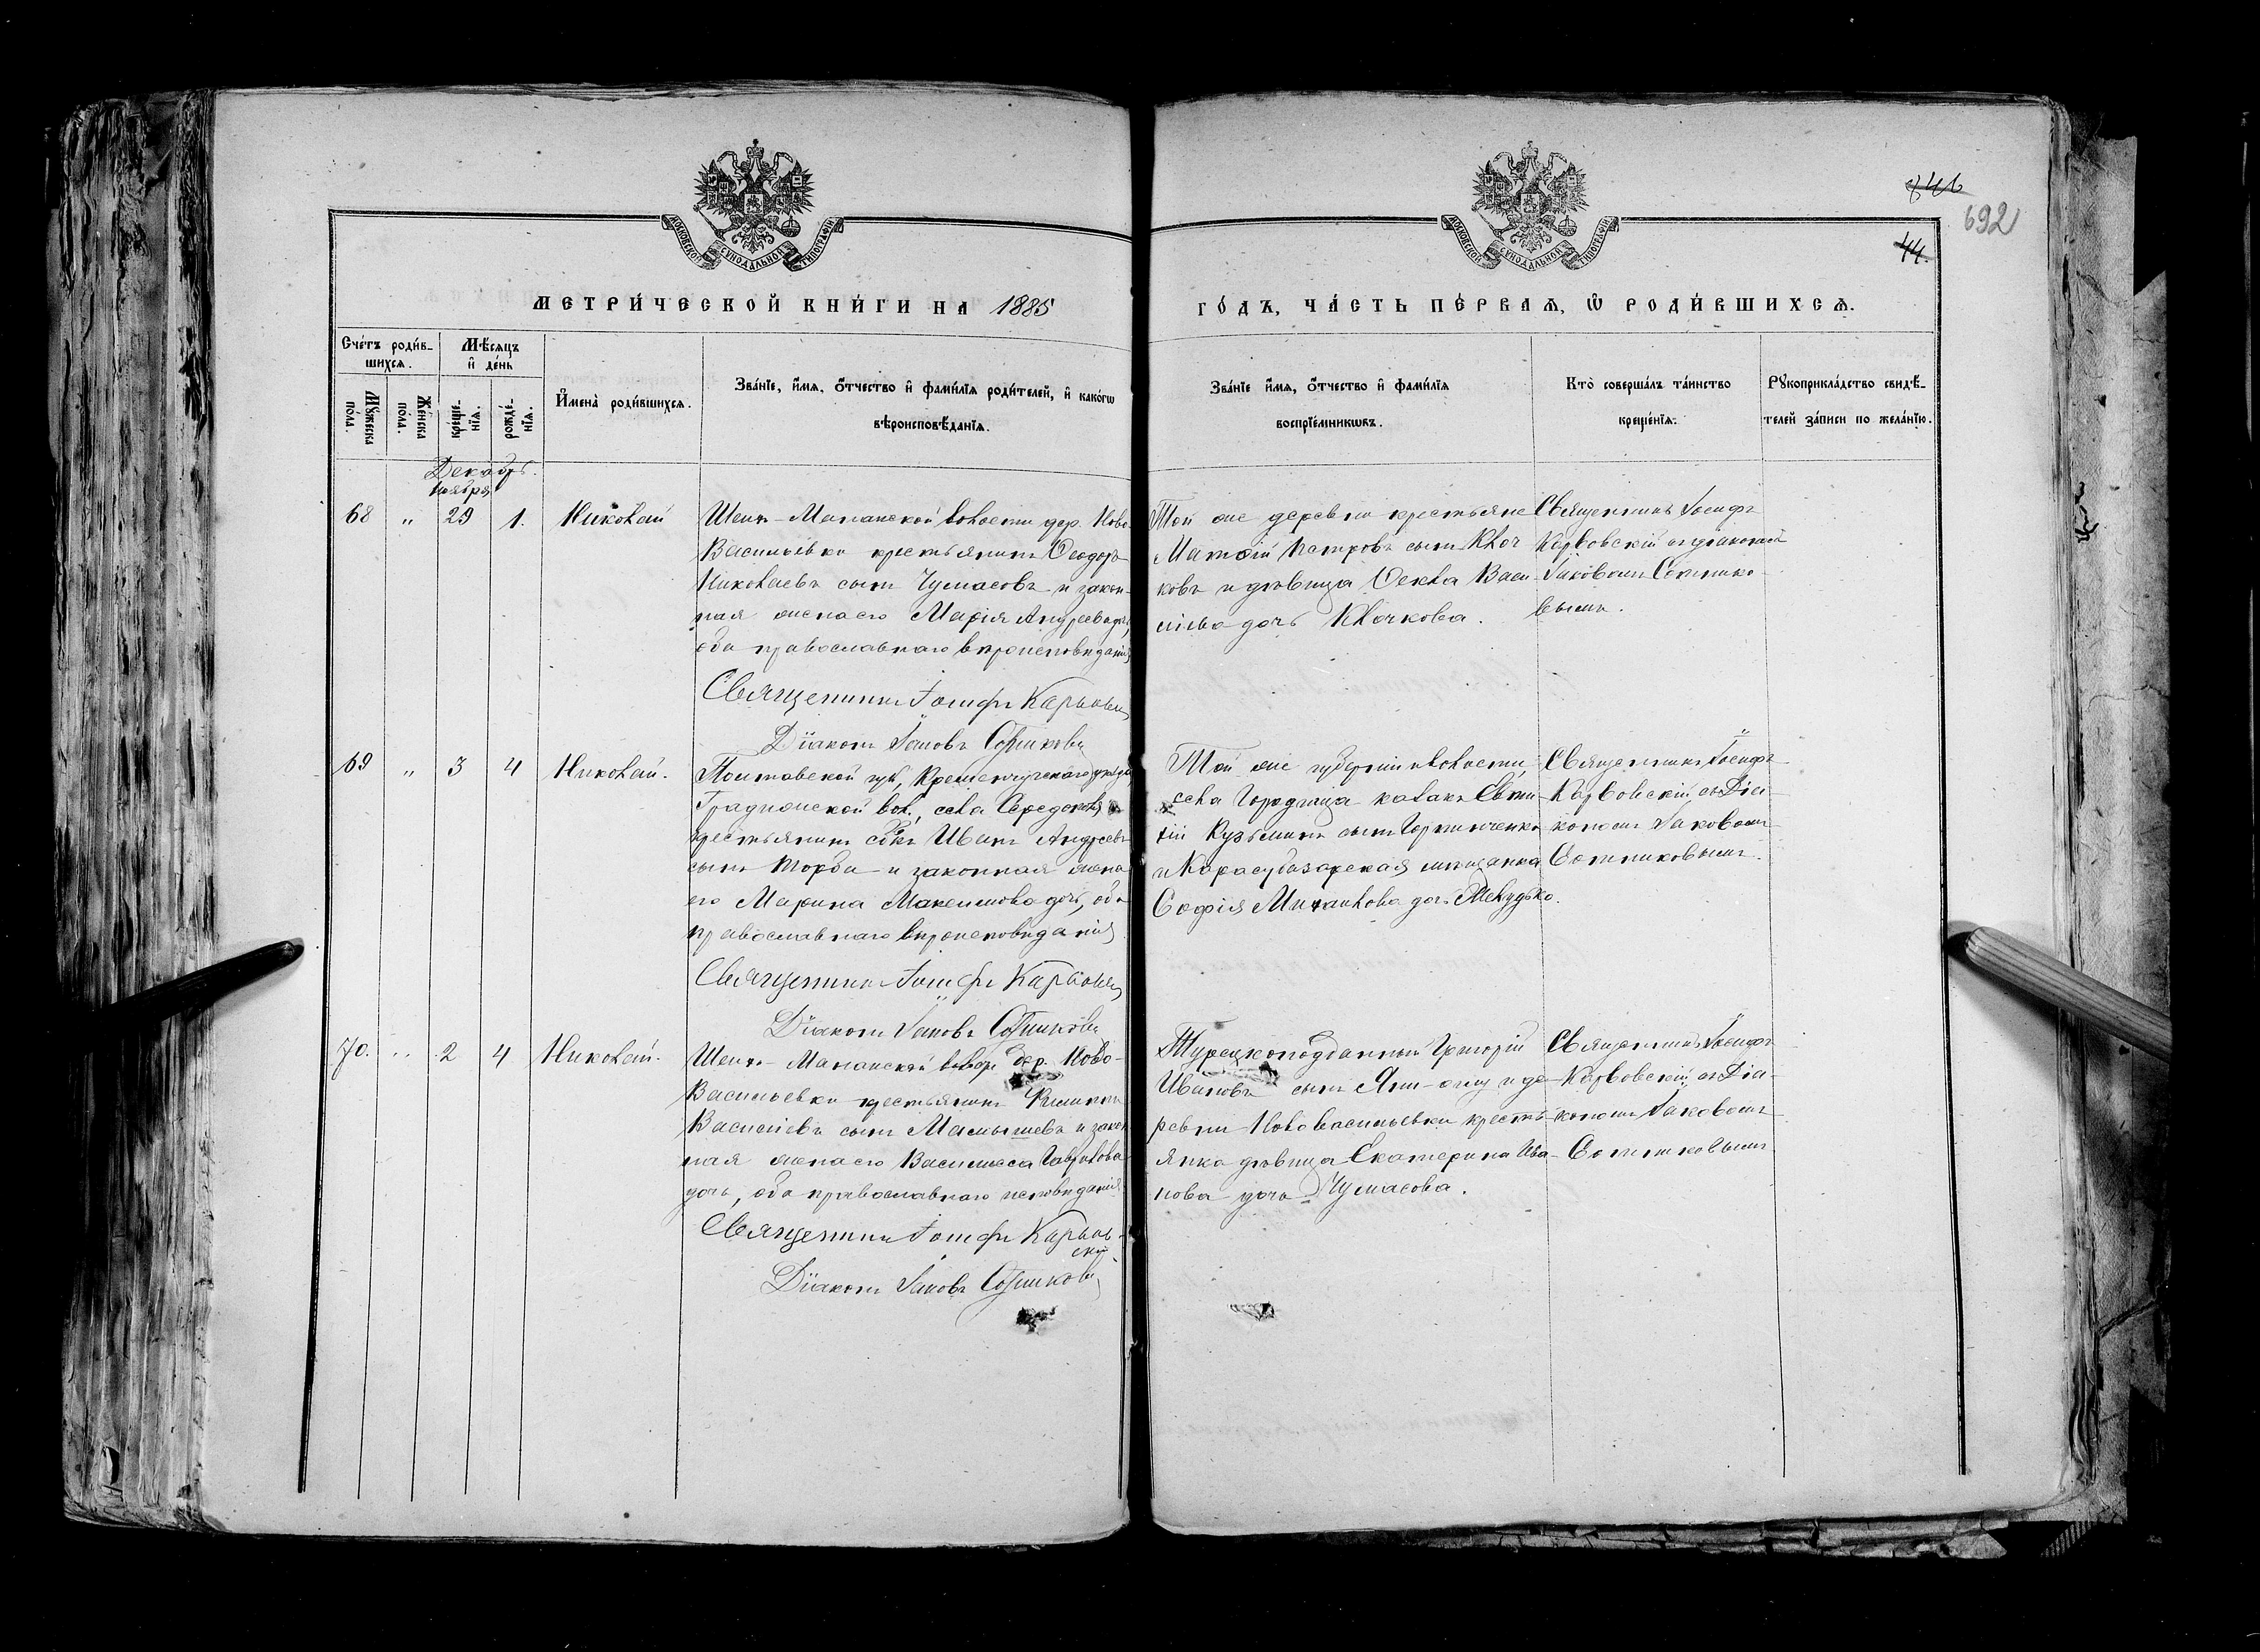 741
692
44.
МОСКОВСКОЙ СѴНОДАЛЬНОЙ ТИПОГРАФІИ
МОСКОВСКОЙ СѴНОДАЛЬНОЙ ТИПОГРАФІИ
МЕТРИ́ЧЕСКОЙ КНИ́ГИ НА 1885
ГО́ДЪ, ЧА́СТЬ ПЕ́РВАѦ, Ѿ РОДИ́ВШИХСѦ.
Сче́тъ роди́в-
шихсѧ.
Мѣ́сѧцъ
и҆ де́нь
Мꙋ́жеска
по́ла.
Же́нска
по́ла.
креще́-
нїѧ.
рожде́-
нїѧ.
И҆мена̀ роди́вшихсѧ.
Зва́нїе, и҆́мѧ, ѻ҆́тчество и҆ фами́лїѧ роди́телей, и҆ како́гѡ
вѣроисповѣ́данїѧ.
Зва́нїе и҆́мѧ, ѻ҆́тчество и҆ фами́лїѧ
воспрїе́мникѡвъ.
Кто̀ соверша́лъ та́инство
креще́нїѧ.
Рꙋкоприкла́дство свидѣ́-
телей за́писи по жела́нїю.
Декабрь.
Ноября
68 " 29 1. Николай
Шейх-Манайской волости дер. Ново
Васильевки крестьянинъ Ѳеодоръ
Николаевъ сынъ Чумасовъ и закон-
ная жена его Марія Андреева дочь,
оба православнаго вѣроисповѣданія
Священникъ Іосифъ Карвовскій
Діаконъ Іаковъ Сотниковъ
Той же деревни крестьяне
Матѳій Петровъ сынъ Клоч
ковъ и дѣвица Ѳекла Васи-
ліева дочь Клочкова.
Священникъ Іосифъ
Карвовскій съ діакономъ
Іаковомъ Сотнико-
вымъ.
69 " 3 4 Николай.
Полтавской губ, Кременчугскаго уѣзда,
Градижской вол., села
крестьянинъ соб. Иванъ Андреевъ
сынъ Торба и законная жена
его Марина Максимова дочь, оба
православнаго вѣроисповѣданія
Священникъ Іосифъ Карвовскій
Діаконъ Іаковъ Сотниковъ
Той же губерніи и волости,
села Городища казакъ Евти-
хій Кузьминъ сынъ
и Карасубазарская мѣщанка
Софія Михаилова дочь
Священникъ Іосифъ
Карвовскій, съ Діа-
кономъ Іаковомъ
Сотниковымъ.
70. " 2 4 Николай.
Шейх-Манайской волос. дер. Ново-
Васильевки крестьянинъ
Василіевъ сынъ Мамышевъ и закон
ная жена его Василисса Гаврилова
дочь, оба православнаго исповѣданія
Священникъ Іосифъ Карвов-
скій
Діаконъ Іаковъ Сотниковъ
Турецкоподданный Григорій
Ивановъ сынъ и де-
ревни Нововасильевки кресть-
янка дѣвица Екатерина Ива-
нова дочь Чумасова.
Священникъ Іосифъ
Карвовскій, съ Діа-
кономъ Іаковомъ
Сотниковымъ